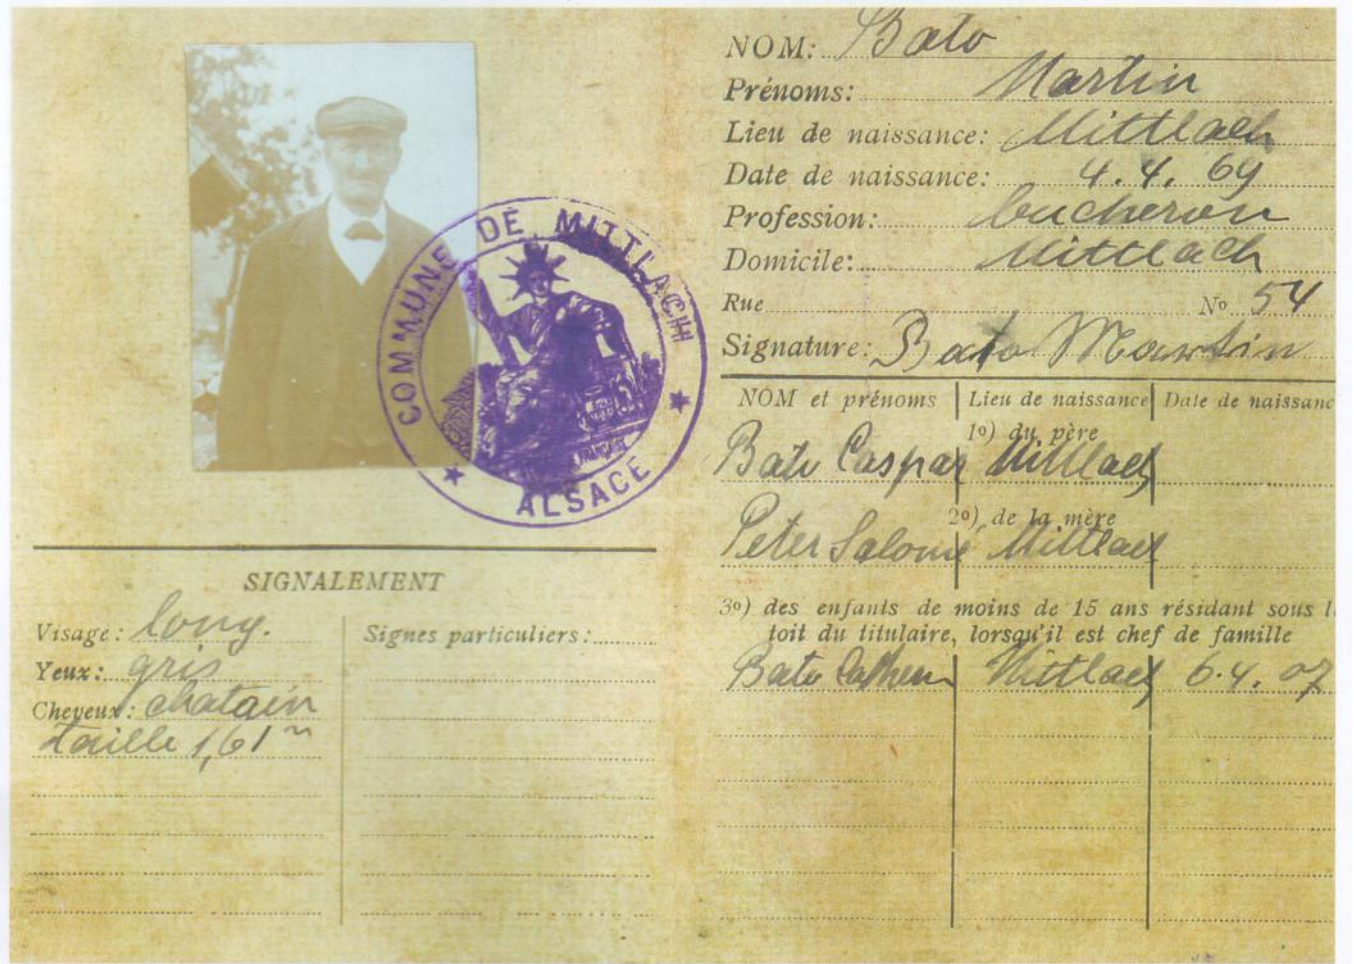 COMMUNE DE MITTLACH
ALSACE
SIGNALEMENT
Visage: long.
Yeux: gris
Cheveux: chatain
taille 1,61 m
Signes particuliers:
NOM: Bato
Prénoms: Martin
Lieu de naissance: Mittlach
Date de naissance: 4.4.69
Profession: bucheron
Domicile: Mittlach
Rue No 54
Signature: Bato Martin
NOM et prénoms Lieu de naissance Date de naissanc
1o) du père
Bato Caspar Mittlach
2o) de la mère
Peter Salomé Mittlach
3o) des enfants de moins de 15 ans résidant sous l
toit du titulaire, lorsqu'il est chef de famille
Bato Mittlach 6.4.07